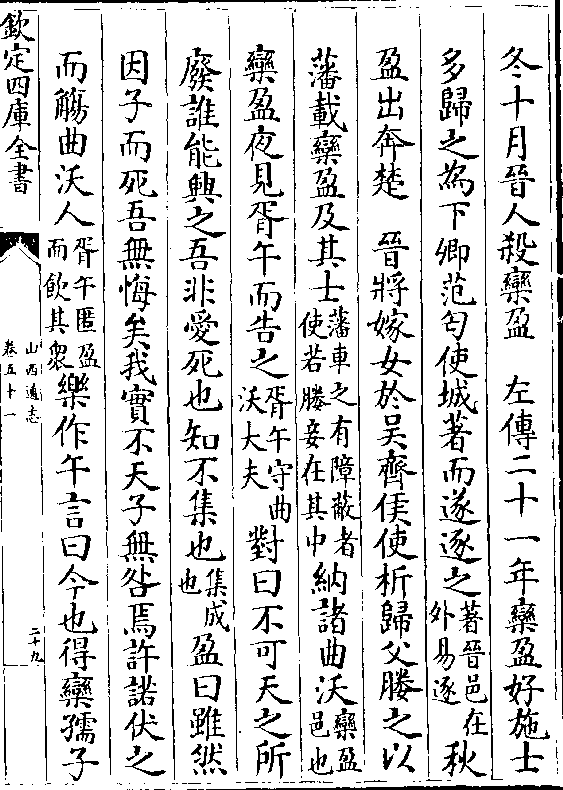 冬十月晉人殺欒盈　左傳二十一年欒盈好施士
多歸之為下卿范匄使城著而遂逐之著晉邑在外易逐秋
盈出奔楚　晉將嫁女於吳齊侯使析歸父媵之以
藩載欒盈及其士藩車之有障蔽者使若媵妾在其中納諸曲沃欒盈邑也
欒盈夜見胥午而告之胥午守曲沃大夫對曰不可天之所
廢誰能興之吾非愛死也知不集也集成也盈曰雖然
因子而死吾無悔矣我實不天子無咎焉許諾伏之
而觴曲沃人胥午匿盈而飲其衆樂作午言曰今也得欒孺子
欽定四庫全書
山西通志
卷五十一
二十九